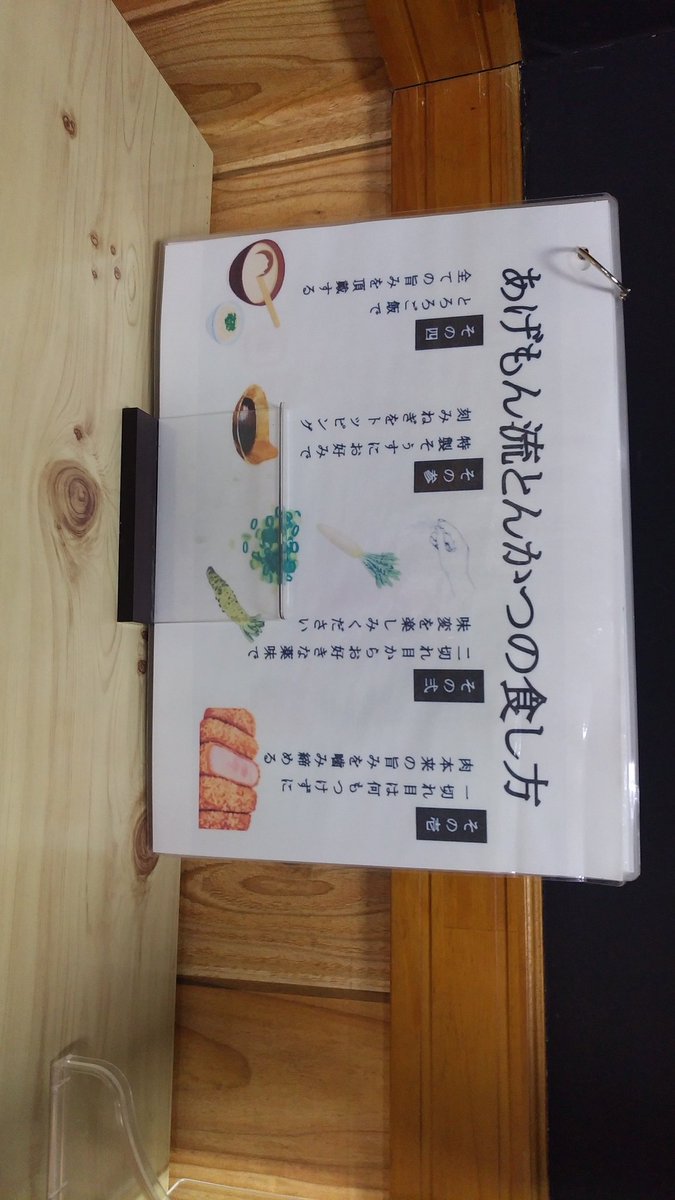 あげもん流とんかつの食し方
その壱
一切れ目は何もつけずに
肉本来の旨みを噛み締める
その弐
二切れ目からお好きな薬味で
味変を楽しみください
その参
特製そうすにお好みで
刻みねぎをトッピング
その四
とろろご飯で
全ての旨みを頂戴する